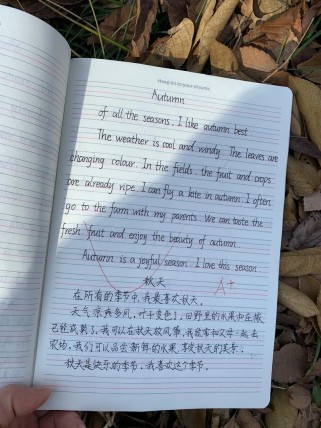 Autumn
of all the seasons, I like autumn best.
The weather is cool and windy. The leaves are
changing colour. In the fields, the fruit and crops
are already ripe. I can fly a kite in autumn. I often
go to the farm with my parents. We can taste the
fresh fruit and enjoy the beauty of autumn.
Autumn is a joyful season. I love this season.
A+
秋天
在所有的季节中,我最喜欢秋天。
天气凉爽多风,叶子变色了,田野里的水果和庄稼
已经成熟了。我可以在秋天放风筝,我经常和父母一起去
农场,我们可以品尝新鲜的水果,享受秋天的美景。
秋天是快乐的季节,我喜欢这个季节。